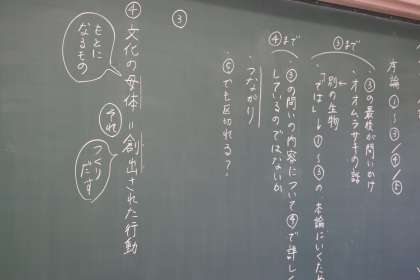 本論 ①〜③/④/⑤
③まで
・③の最後が問いかけ
・オオムラサキの話
←
別の生物
・「では」→①〜③の本論にいくため
④まで
・③の問いの内容について④で詳しく
しているのではないか
・つながり
・⑤でも区切れる？
③
④ 文化の母体＝創出された行動
もとに
なるもの
それ
つくり
だす